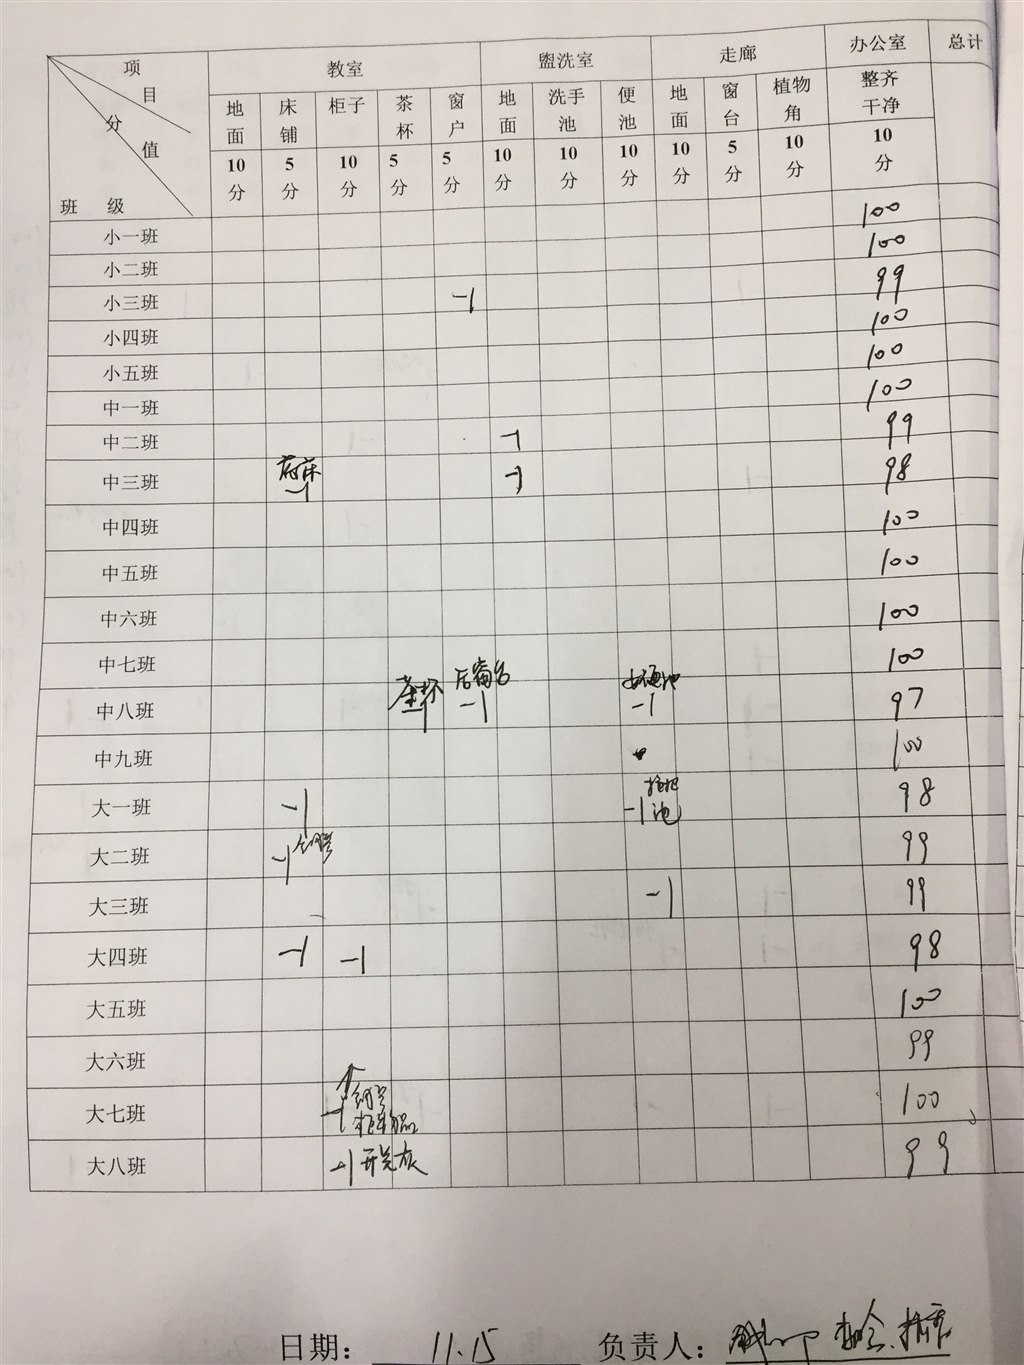 项目 教室 盥洗室 走廊 办公室 总计
分值 地面 床铺 柜子 茶杯 窗户 地面 洗手池 便池 地面 窗台 植物角 整齐干净
班级 10分 5分 10分 5分 5分 10分 10分 10分 10分 5分 10分 10分
小一班 100
小二班 100
小三班 -1 99
小四班 100
小五班 100
中一班 100
中二班 -1 99
中三班 -1 -1 98
中四班 100
中五班 100
中六班 100
中七班 100
中八班 茶杯 -1 后窗台 -1 -1 97
中九班 100
大一班 -1 -1 池 98
大二班 -1 99
大三班 -1 99
大四班 -1 -1 98
大五班 100
大六班 99
大七班 -1 100
大八班 -1 开关灰 99
日期: 11.15 负责人: